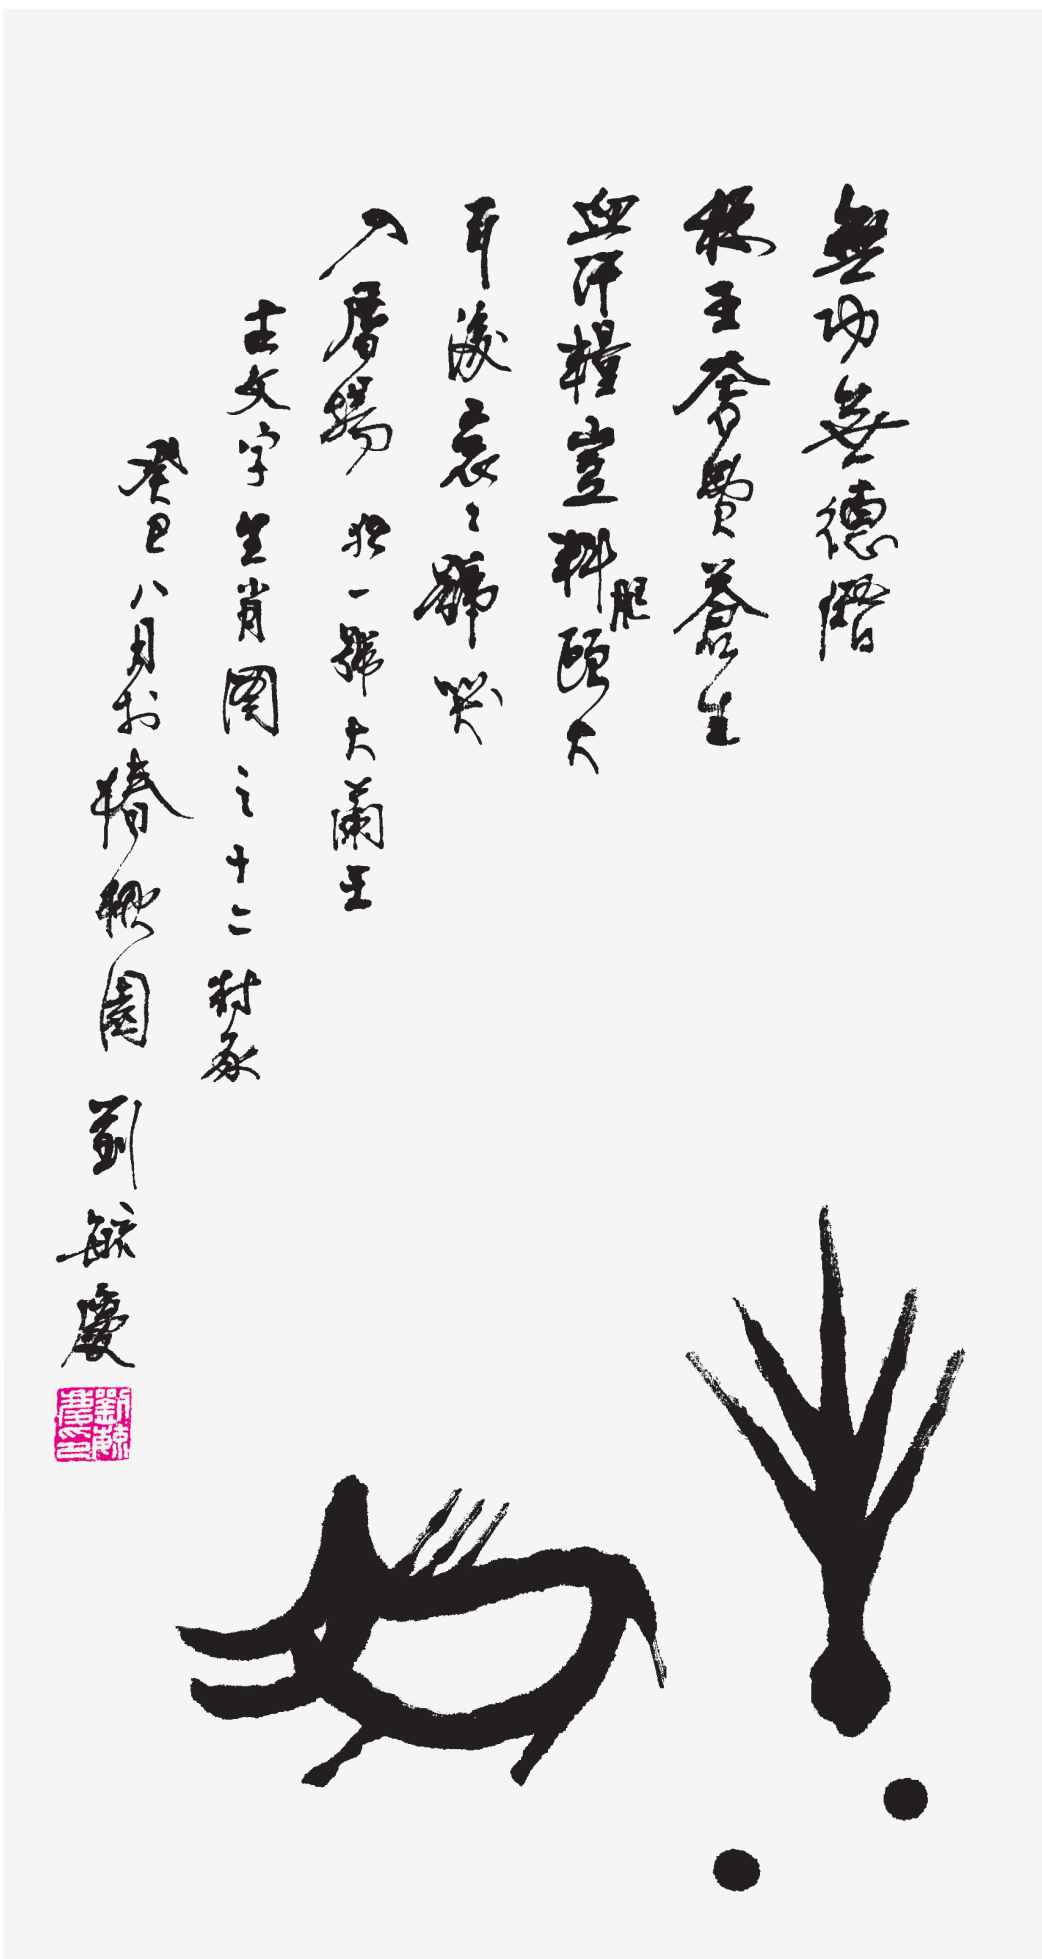 無功無德僭
稱王奢費蒼生
血汗糧豈料肥頤大
耳後哀〻號哭
入屠場 猪一號大蘭王
古文字生肖图之十二 封豕
癸巳八月於椿楸園 劉毓慶
劉毓慶印